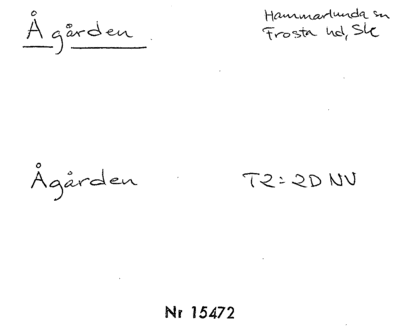 Ågården
Hammarlunda sn
Frosta hd, Sk
Ågården T2: 2D NV
Nr 15472